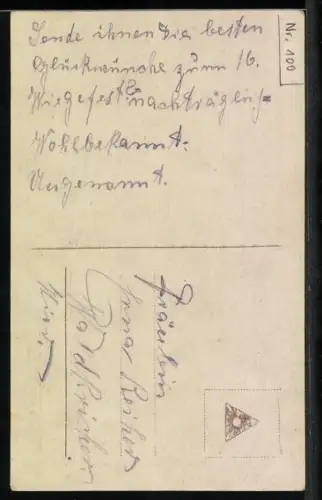 Nr. 100
Sende ihnen die besten
Glückwünsche zum 16.
Wiegefest nachträglich=
Wohlbekannt.
Ungenannt.
Fräulein
Erna Reiher
Waldkirchen